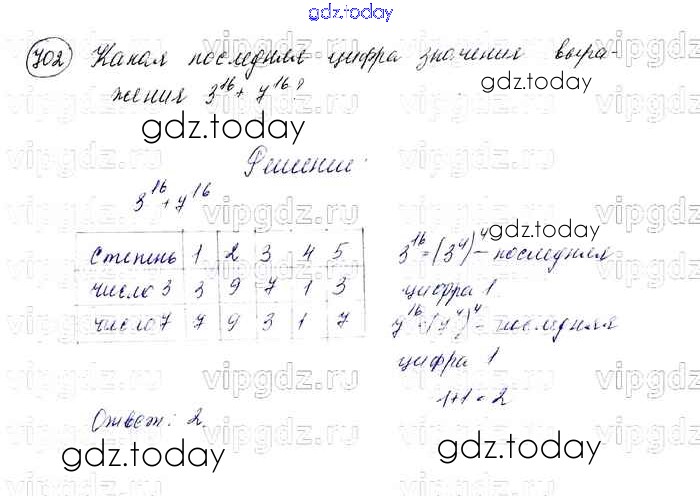 gdz.today
702 Какая последняя цифра значения выра-
жения 3^16 + 7^16?
gdz.today
gdz.today
vipgdz.ru vipgdz.ru vipgdz.ru
Решение:
3^16 + 7^16
степень 1 2 3 4 5
число 3 3 9 7 1 3
число 7 7 9 3 1 7
gdz.today
3^16 = (3^4)^4 – последняя
цифра 1
7^16 = (7^4)^4 – последняя
цифра 1
1+1=2
vipgdz.ru vipgdz.ru vipgdz.ru
Ответ: 2.
gdz.today
gdz.today